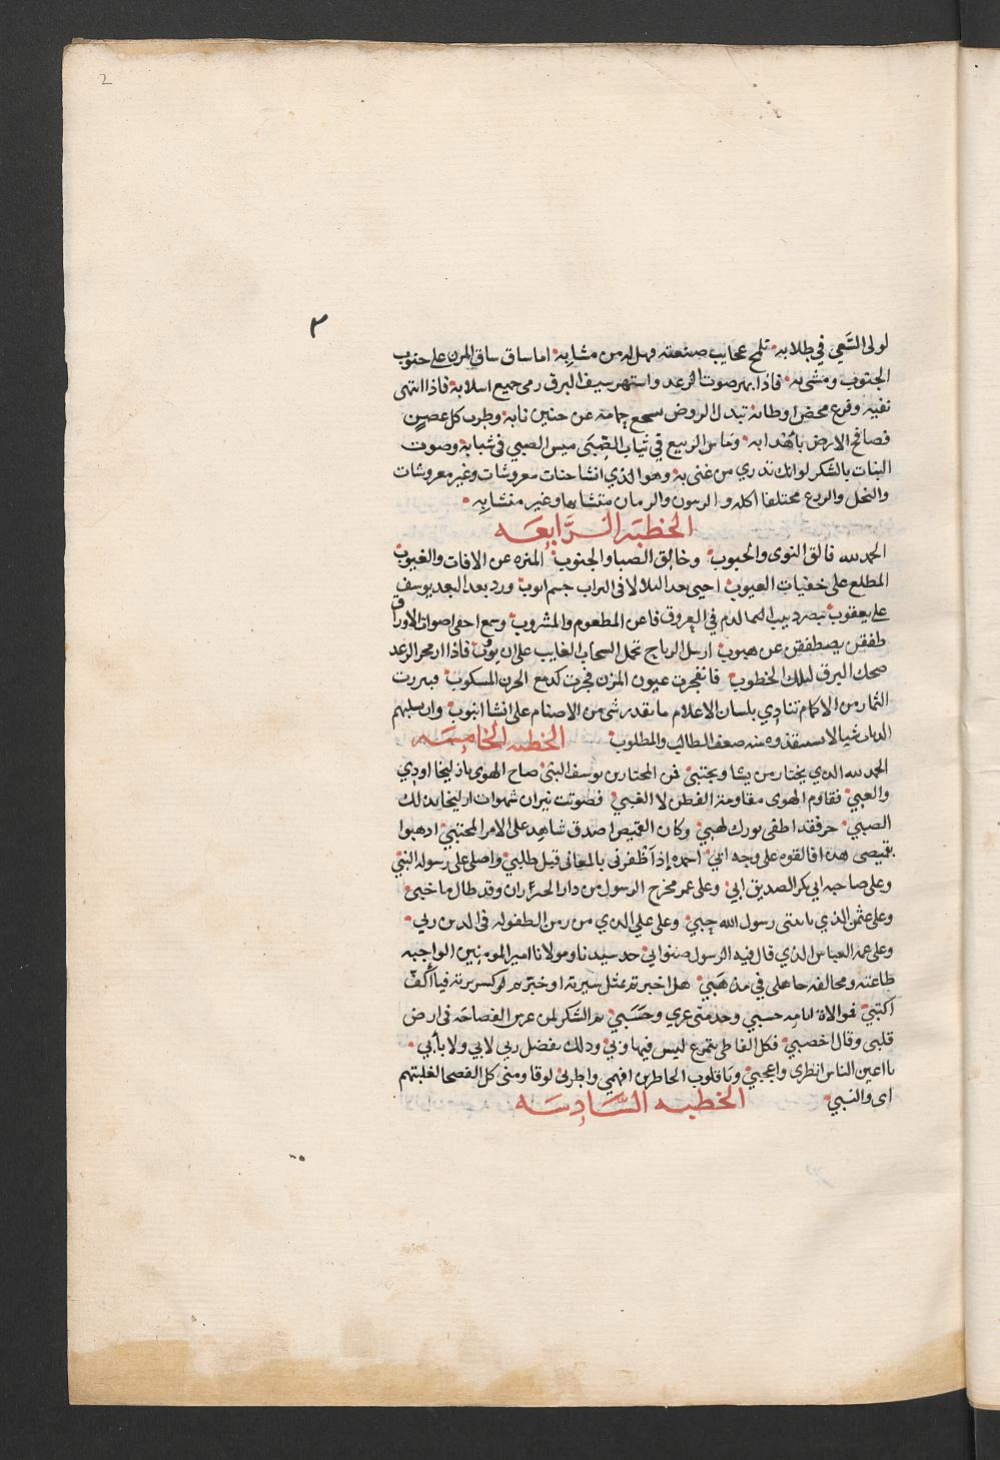 2
٣
لولى السَّعي في طلابه تلمح عجايب صنعته وهل له من مشابه اما ساق ساق المزن على جنوب
الجنوب ومشى به فاذا بهر صوت الرعد واستهر سيف البرق رمى جميع اسلابه فاذا انتهى
نفيه وفرغ محض اوطانه تبدل الروض سجع حمامة عن حنين نابه وطرب كل غصن
فصافح الارض باهدابه وماس الربيع في ثياب الصبى ميس الصبي في شبابه وصوت
النبات بالشكر لو انك تدري من عنى به وهو الذي انشا جنات معروشات وغير معروشات
والنخل والزرع مختلفا اكله والزيتون والرمان متشابها وغير متشابه
الخطبة الرَّابعَه
الحمد لله فالق النوى والحبوب وخالق الصبا والجنوب المنزه عن الافات والعيوب
المطلع على خفيات الغيوب احيى بعد البلا في التراب جسم ايوب ورد بعد البعد يوسف
على يعقوب يبصر دبيب الدم في العروق فاعن المطعوم والمشروب وسمع اخفى اصوات الاوراق
طفقن يصطفقن عن هبوب ارسل الرياح تحمل السحاب الغايب على ان يوب فاذا ازمجر الرعد
ضحك البرق لتلك الخطوب فانفجرت عيون المزن فجرت كدمع الحزن المسكوب وبرزت
الثمار من الاكمام تنادي بلسان الاعلام ما يقدر شى من الاصنام على انشا انبوب وان يسلبهم
الذباب شيا لا يستنقذوه منه ضعف الطالب والمطلوب الخطبه الخامسَه
الحمد لله الذي يختار من يشا ويجتبي فمن المختارين يوسف النبي صاح الهوى يا زليخا اودي
والعبي فقاوم الهوى مقاومة الفطن لا الغبي فصوتت نيران شهوات زليخا بذلك
الصبي حر فقد اطفى نورك لهبي وكان القميص اصدق شاهد على الامر المجتبي اذهبوا
بقميصى هذا فالقوه على وجه ابي احمده إذ أظفرني بالمعاني قبل طلبي واصلى على رسوله النبي
وعلى صاحبه ابي بكر الصديق ابي وعلى عمر مخرج الرسول من دار الخيزران وقد طال ما خبي
وعلى عثمن الذي رسول الله حبي وعلى علي الذي من زمن الطفوله في الدين ربي
وعلى عمه العباس الذي قال فيه الرسول صنوابي جد سيدنا ومولانا امير المومنين الواجبه
طاعته ومخالفه جاهلى في مذهبي هل اخبرتم بمثل سيرته او خبرتم لو كسريرته فيا اكف
اكتبي فموالاة امامه حسبي وخدمتى عزي وحَسَبي ثم الشكر لمن غرس الفصاحه في ارض
قلبى وقال اخصبي فكل الفاظي بتمرع ليس فيها وبي وذلك بفضل ربي لا بي ولا بأبي
يا اعين الناس انظرى واعجبي ويا قلوب الحاضرين افهمي واطربى لو قاومنى كل الفصحا لغلبتهم
اى والنبي الخطبه السَّادسَه